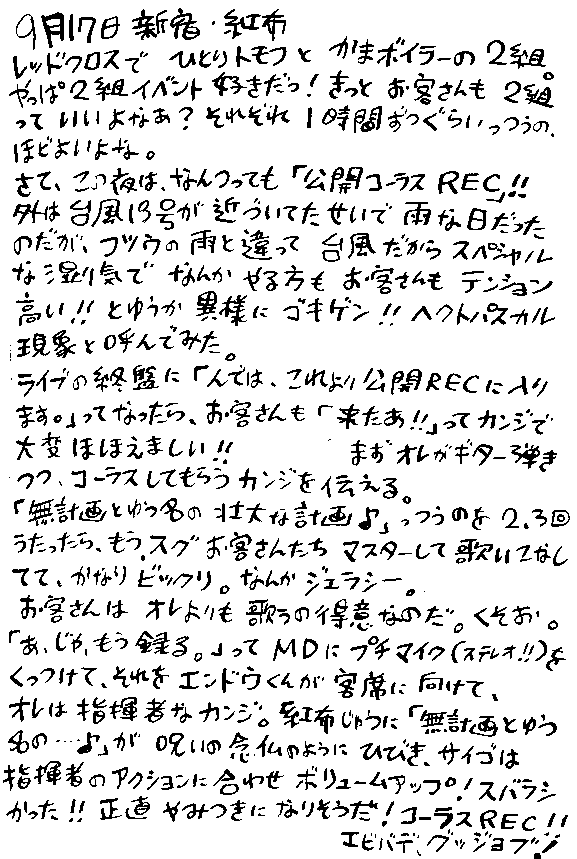 9月17日 新宿・紅布
レッドクロスで ひとりトモフと かまボイラーの2組。
やっぱ2組イベント好きだっ!きっと お客さんも 2組
って いいよなあ? それぞれ 1時間ずつぐらいっつうの、
ほどよいよな。
さて、この夜は、なんつっても「公開コーラスREC」!!
外は台風13号が近づいてたせいで 雨な日だった
のだが、フツウの雨と違って 台風だから スペシャル
な湿り気で なんか やる方も お客さんも テンション
高い!! とゆうか 異様に ゴキゲン!! ヘクトパスカル
現象と呼んでみた。
ライブの終盤に「んでは、これより公開RECに入り
ます。」ってなったら、お客さんも「来たあ!!」ってカンジで
大変ほほえましい!! まずオレがギター弾き
つつ、コーラスしてもらうカンジを伝える。
「無計画とゆう名の 壮大な計画♪」っつうのを 2、3回
うたったら、もう、スグ お客さんたち マスターして歌いこなし
てて、かなり ビックリ。なんか ジェラシー。
お客さんは オレよりも 歌うの得意なのだ。くそお。
「あ、じゃ、もう録る。」って MDに プチマイク(ステレオ!!)を
くっつけて、それを エンドウくんが 客席に 向けて、
オレは指揮者なカンジ。紅布じゅうに「無計画とゆう
名の…♪」が 呪いの念仏のように ひびき、サイゴは
指揮者のアクションに合わせ ボリュームアップ!スバラシ
かった!! 正直 やみつきになりそうだ!コーラスREC!!
エビバデ、グッジョブ!